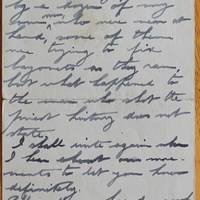 by a dozen of my
own men who were near at
hand, some of them
were trying to fix
bayonets as they ran,
but what happened to
the man who shot the
priest history does not
state.
I shall write again when
I hear about our move-
ments to let you know
definitely.